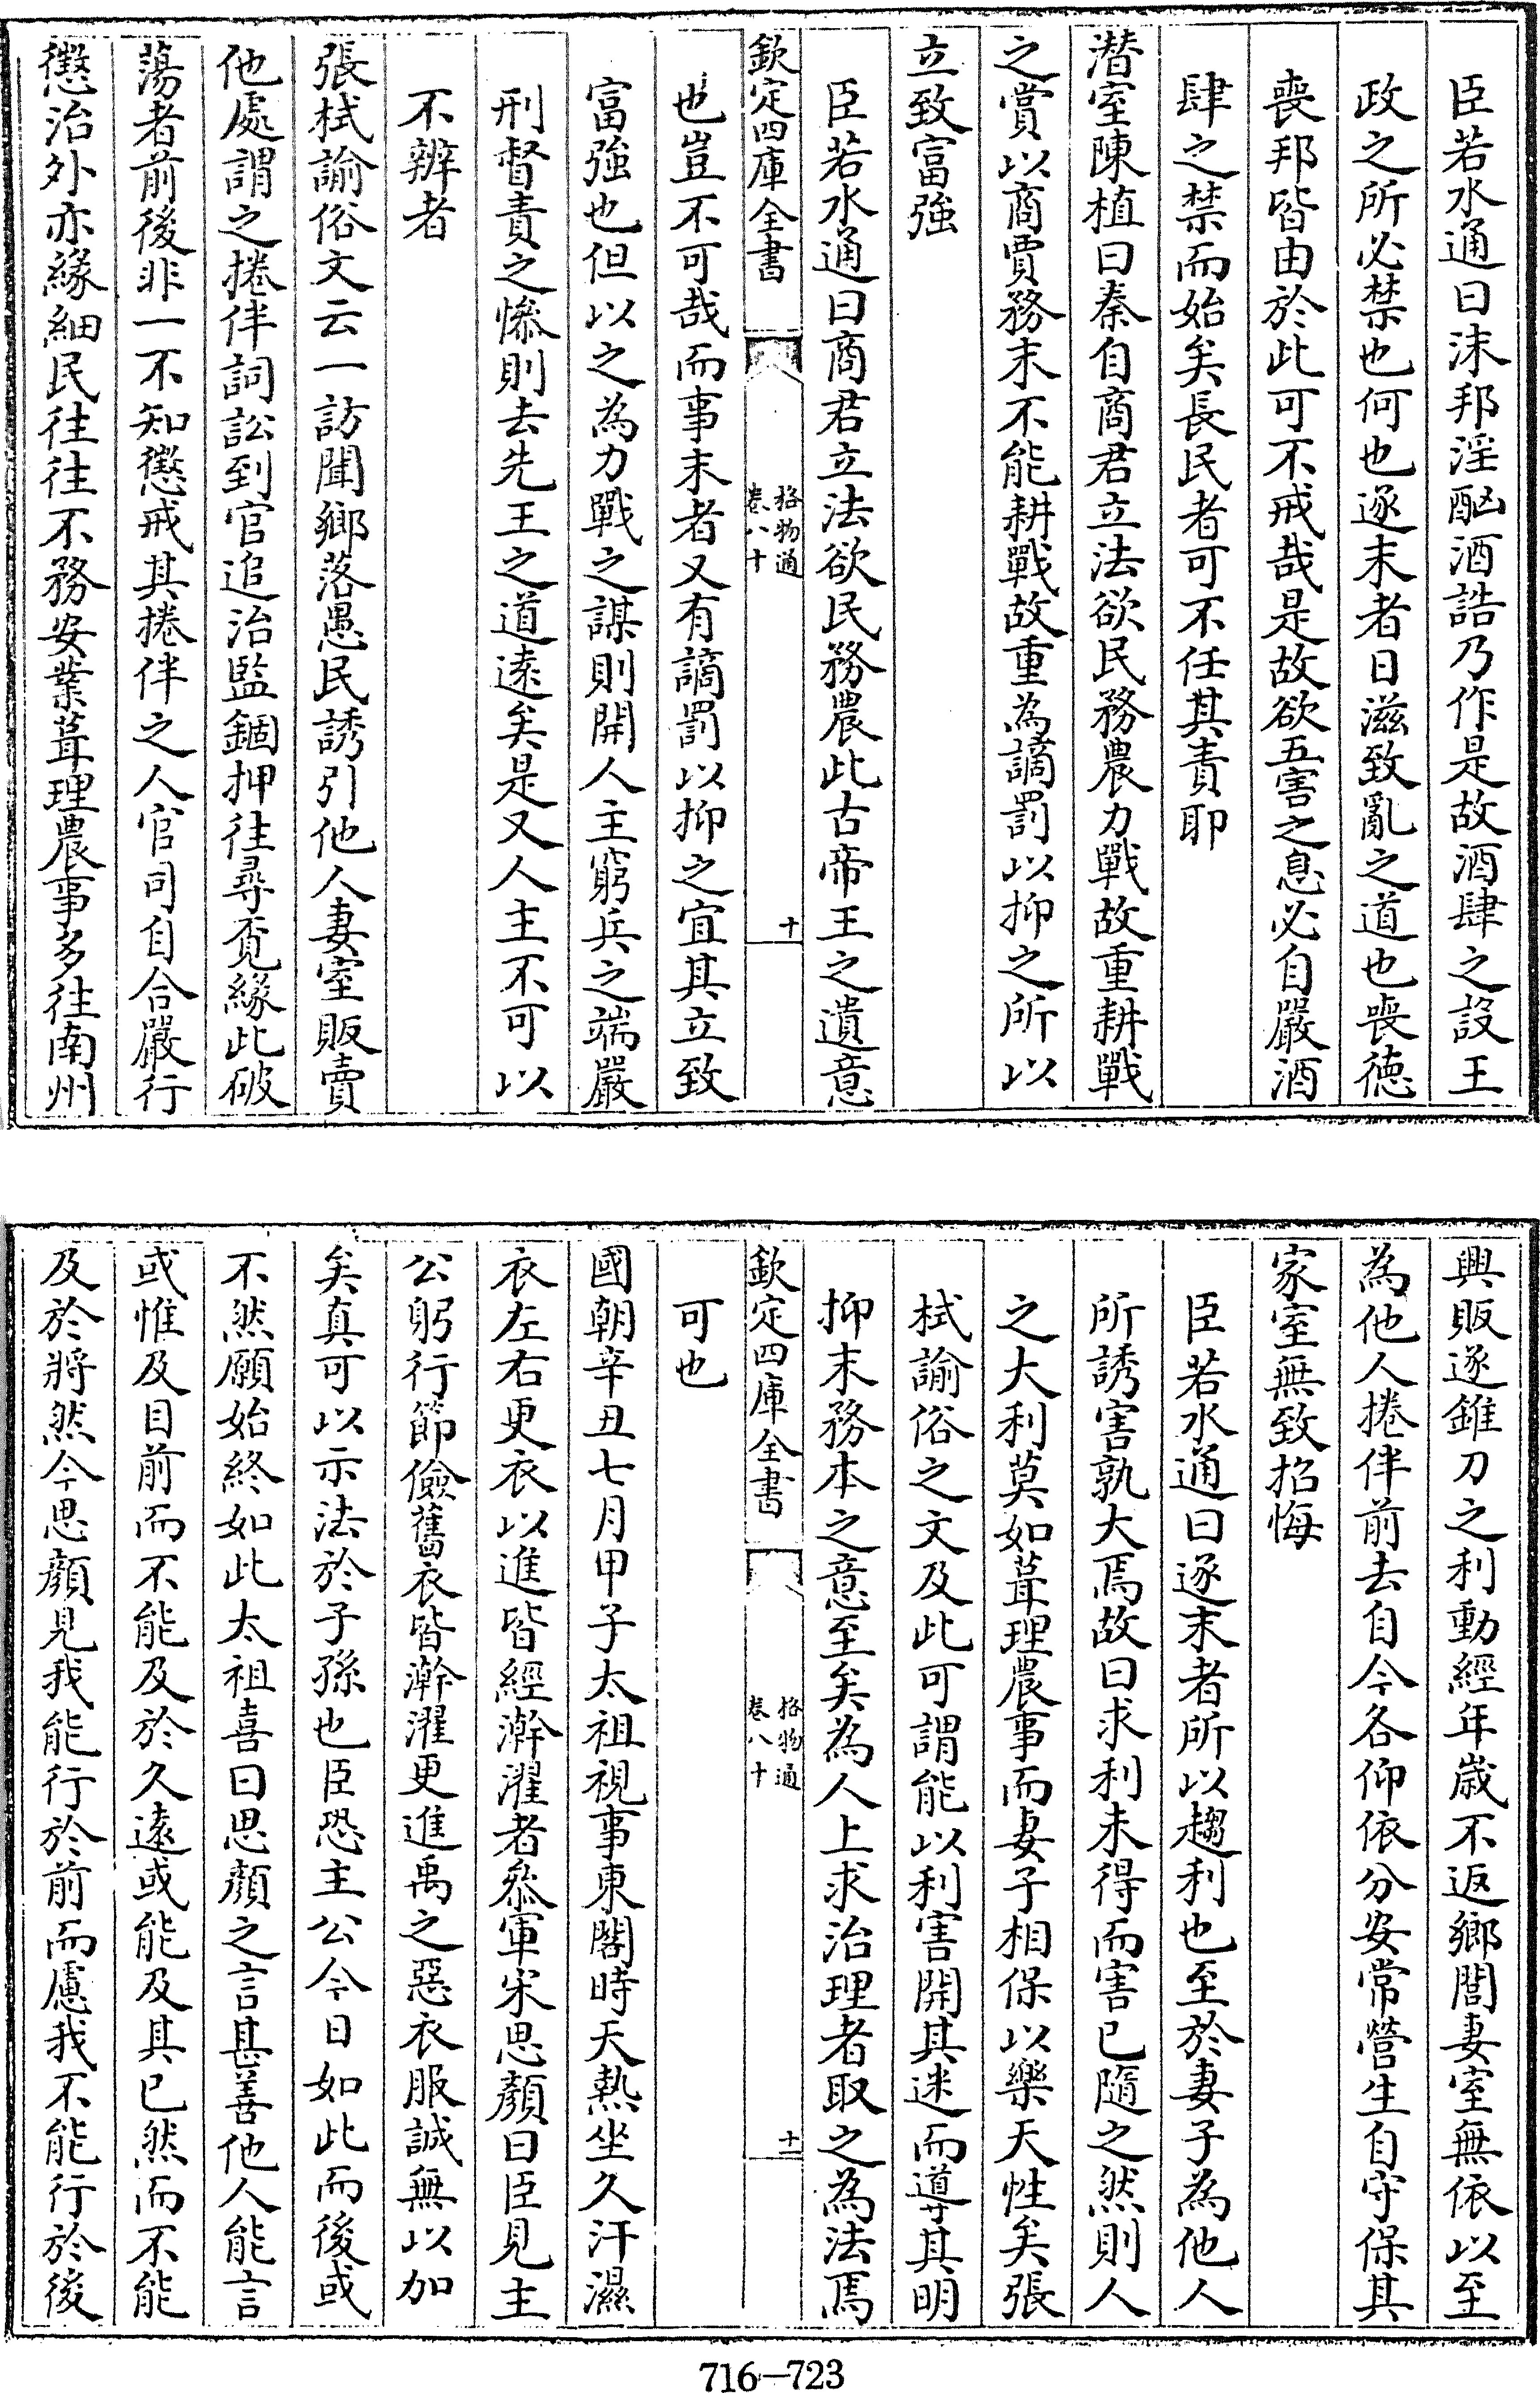 臣若水通曰沬邦淫酗酒誥乃作是故酒肆之設王
政之所必禁也何也逐末者日滋致亂之道也喪德
喪邦皆由於此可不戒哉是故欲五害之息必自嚴酒
肆之禁而始矣長民者可不任其責耶
潜室陳植曰秦自商君立法欲民務農力戰故重耕戰
之賞以商賈務末不能耕戰故重為謫罰以抑之所以
立致富強
臣若水通曰商君立法欲民務農此古帝王之遺意
欽定四庫全書
格物通
卷八十
十
也豈不可哉而事末者又有謫罰以抑之宜其立致
富強也但以之為力戰之謀則開人主窮兵之端嚴
刑督責之慘則去先王之道遠矣是又人主不可以
不辨者
張栻諭俗文云一訪聞鄉落愚民誘引他人妻室販賣
他處謂之捲伴詞訟到官追治監錮押往尋覔緣此破
蕩者前後非一不知懲戒其捲伴之人官司自合嚴行
懲治外亦緣細民往往不務安業葺理農事多往南州
興販逐錐刀之利動經年歲不返鄉閭妻室無依以至
為他人捲伴前去自今各仰依分安常營生自守保其
家室無致招悔
臣若水通曰逐末者所以趨利也至於妻子為他人
所誘害孰大焉故曰求利未得而害已隨之然則人
之大利莫如葺理農事而妻子相保以樂天性矣張
栻諭俗之文及此可謂能以利害開其迷而導其明
抑末務本之意至矣為人上求治理者取之為法焉
欽定四庫全書
格物通
卷八十
十一
可也
國朝辛丑七月甲子太祖視事東閣時天熱坐久汗濕
衣左右更衣以進皆經澣濯者叅軍宋思顏曰臣見主
公躬行節儉舊衣皆澣濯更進禹之惡衣服誠無以加
矣真可以示法於子孫也臣恐主公今日如此而後或
不然願始終如此太祖喜曰思顏之言甚善他人能言
或惟及目前而不能及於久遠或能及其已然而不能
及於將然今思顏見我能行於前而慮我不能行於後
716—723